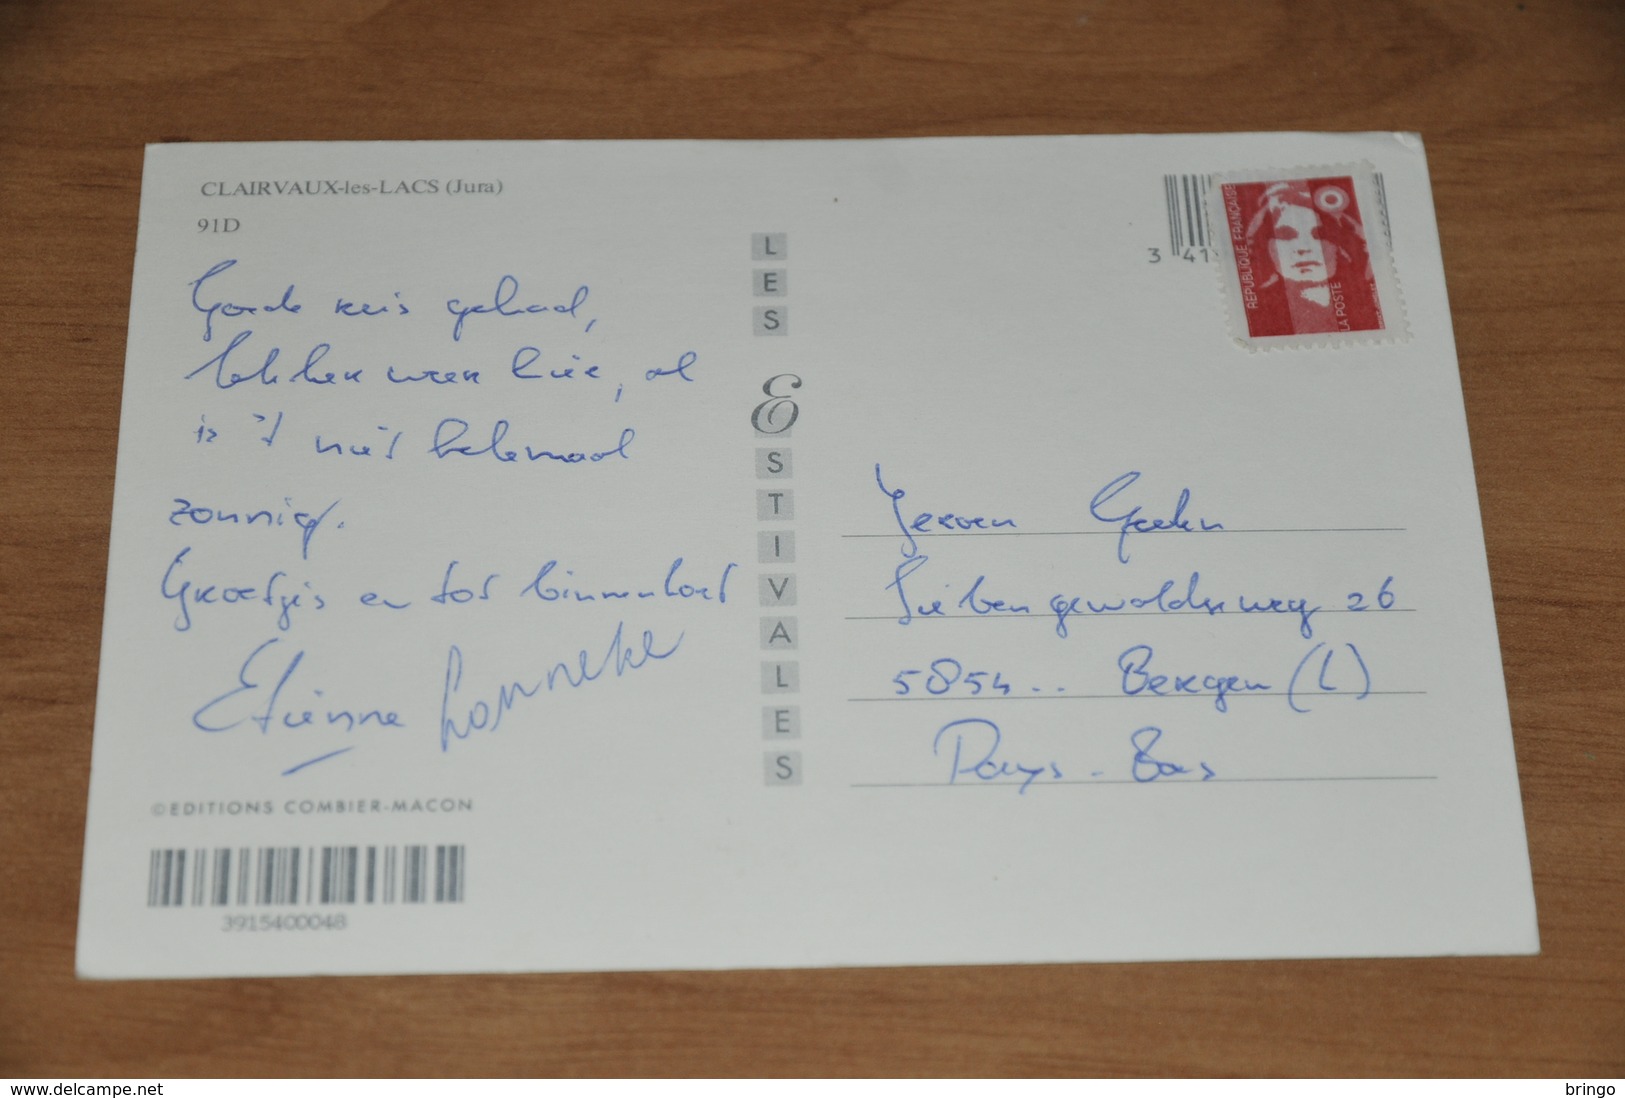 CLAIRVAUX-les-LACS (Jura)
91D
Goede reis gehad,
lekker weer hier, al
is 't niet helemaal
zonnig.
Groetjes en tot binnenkort
Etienne Lonneke
©EDITIONS COMBIER-MACON
3915400048
LES ESTIVALES
3 41
REPUBLIQUE FRANÇAISE
LA POSTE
Jeroen
Siebengewaldseweg 26
5854.. Bergen (L)
Pays-Bas
delcampe.net
bringo